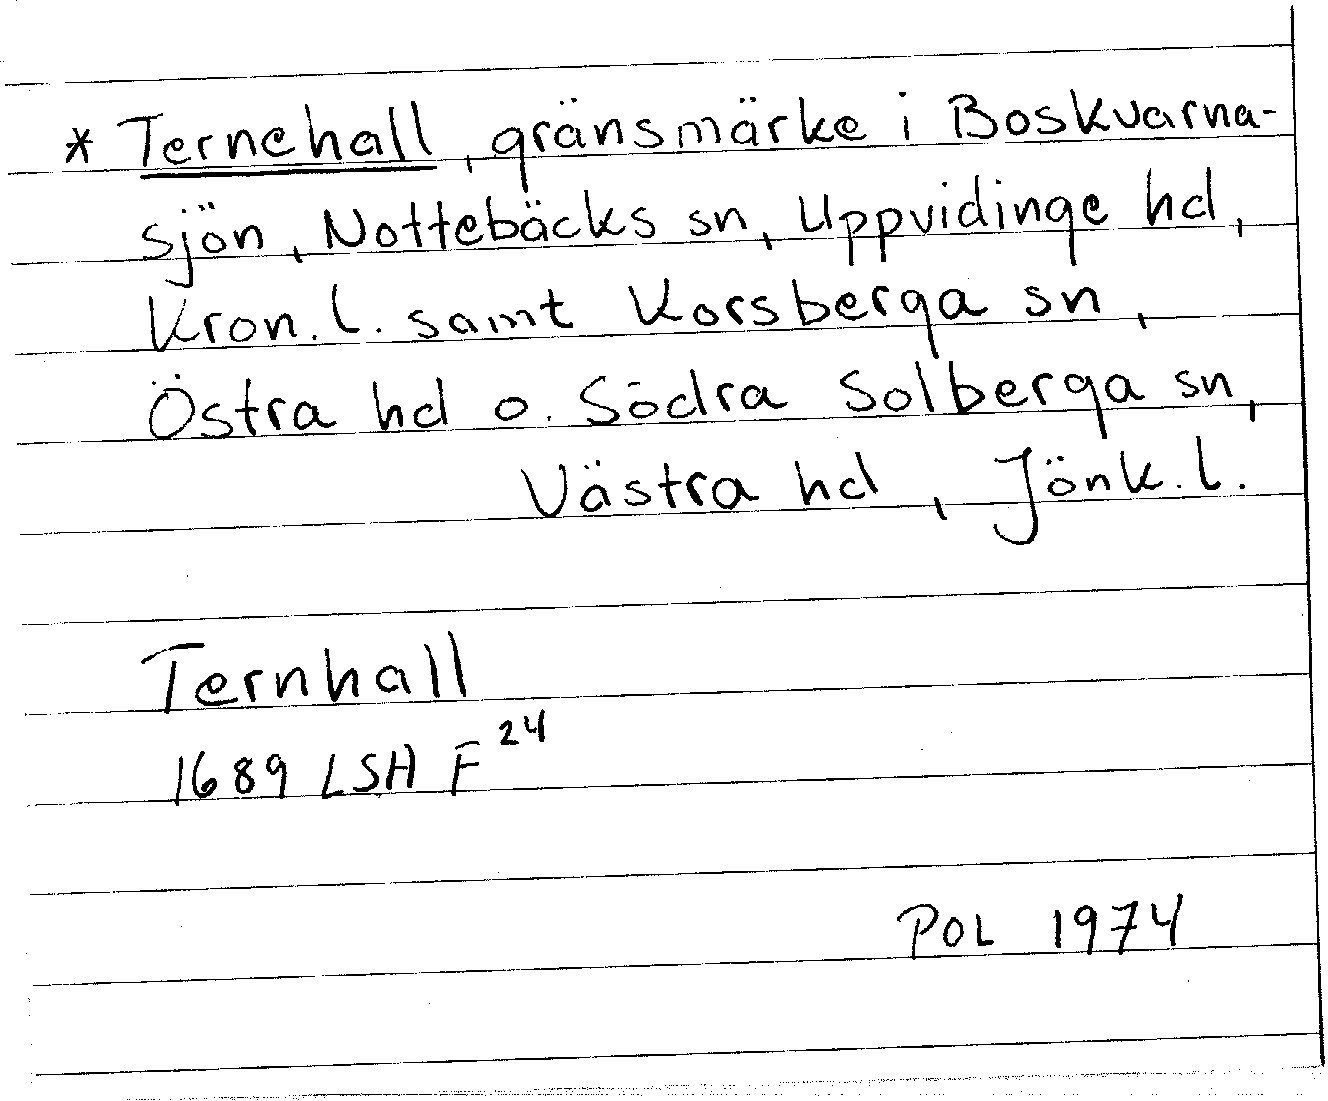 * Ternehall, gränsmärke i Boskvarna-
sjön, Nottebäcks sn, Uppvidinge hd,
Kron. l. samt Korsberga sn,
Östra hd o. Södra Solberga sn,
Västra hd, Jönk. l.
Ternhall
1689 LSH F 24
POL 1974